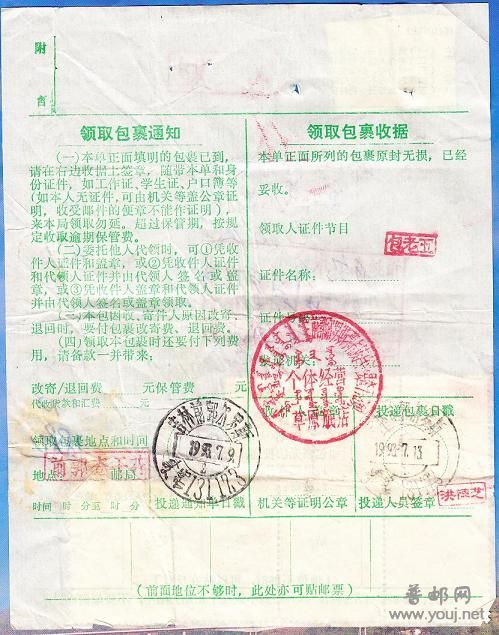 附
言
领取包裹通知
(一)本单正面填明的包裹已到,
请在右边收据上签章,随带本单和身
份证件,如工作证、学生证、户口簿等
(如本人无证件,可由机关等盖公章证
明,收受邮件的便章不能作证明),
来本局领取勿延。超过保管期,按规
定收取逾期保管费。
(二)委托他人代领时,可①凭收
件人证件和盖章,或②凭收件人证件
和代领人证件并由代领人签名或盖
章,或③凭收件人证件和代领人证件
并由代领人签名或盖章领取。
(三)本包因收、寄件人原因改寄、
退回时,要付包裹改寄费、退回费。
(四)领取本包裹时还要付下列费
用,请备款一并带来:
改寄/退回费 元保管费 元
代收货款和汇费
领取包裹地点和时间
地点 邮局
时间 时 分至 时 分
投递通知单日戳
领取包裹收据
本单正面所列的包裹原封无损,已经
妥收。
领取人证件节目
包老五
证件名称:
个体经营
草原旅店
机关等证明公章
投递包裹日戳
1993.7.9
131123
1993.7.13
投递人员签章
(前面地位不够时,此处亦可贴邮票)
普邮网
www.youj.net